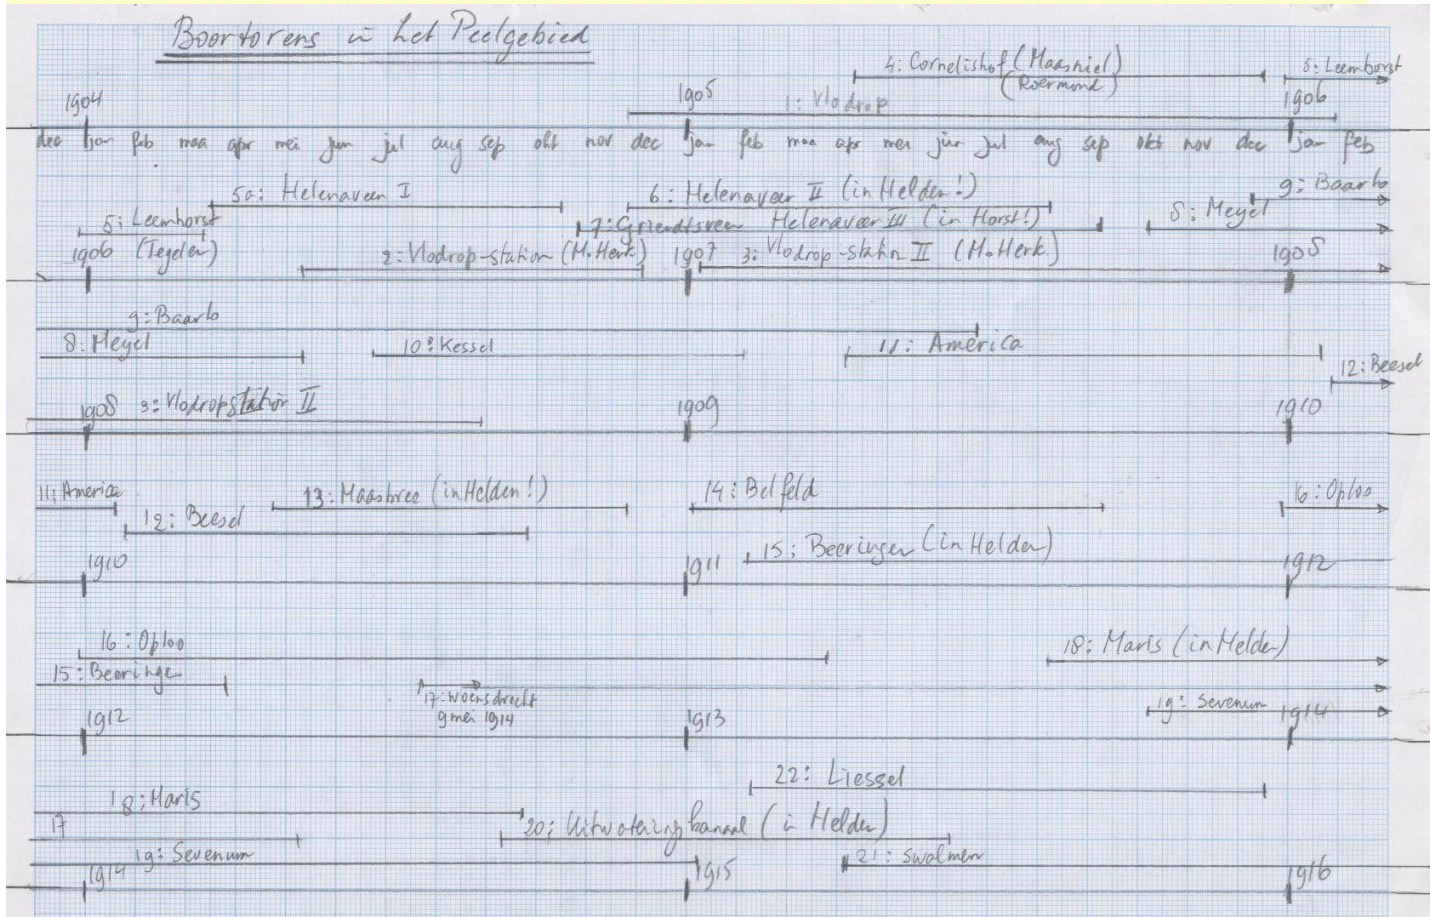 Boortorens in het Peelgebied
4: Cornelishof (Maasniel)
(Roermond)
5: Leemhorst
1904
1905
1: Vlodrop
1906
dec jan feb maa apr mei jun jul aug sep okt nov dec jan feb maa apr mei jun jul aug sep okt nov dec jan feb
5a: Helenaveen I
6: Helenaveen II (in Helden!)
9: Baarlo
5: Leemhorst
(Tegelen)
7: Griendtsveen Helenaveen III (in Horst!)
8: Meyel
1906
2: Vlodrop-station (M. Herk)
1907
3: Vlodrop-station II (M. Herk.)
1908
9: Baarlo
8: Meyel
10: Kessel
11: America
12: Beesel
1908
3: Vlodropstation II
1909
1910
11: America
13: Maasbree (in Helden!)
14: Belfeld
16: Oploo
12: Beesel
15: Beeringen (in Helden)
1910
1911
1912
16: Oploo
18: Maris (in Helden)
15: Beeringe
17: Woensdrecht
9 mei 1914
19: Sevenum
1912
1913
1914
22: Liessel
18: Maris
17
20: Uitwateringkanaal (in Helden)
19: Sevenum
21: Swalmen
1914
1915
1916